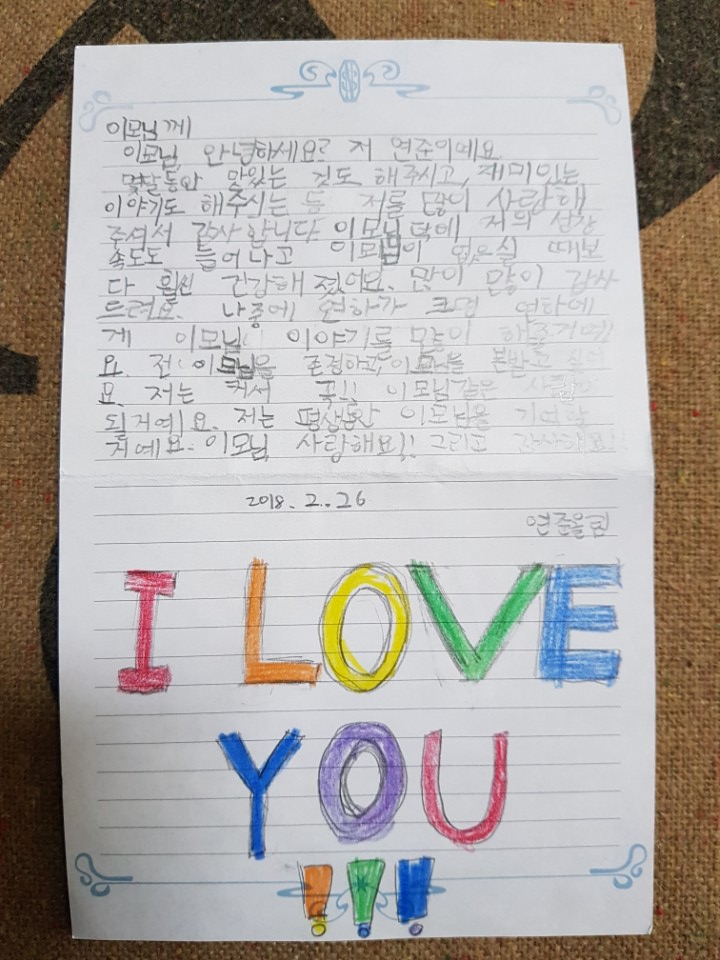 이모님께
이모님 안녕하세요? 저 연준이예요
몇달동안 맛있는 것도 해주시고, 재미있는
이야기도 해주시는 등 저를 많이 사랑해
주셔서 감사합니다 이모님 덕에 저의 성장
속도도 늘어나고 이모님이 없으실 때보
다 훨씬 건강해졌어요. 많이 많이 감사
드려요. 나중에 연하가 크면 연하에
게 이모님 이야기를 많이 해줄거예
요. 전 이모님을 존경하고, 이모님을 본받고 싶어
요. 저는 커서 꼭!! 이모님같은 사람이
될거예요. 저는 평생동안 이모님을 기억할
거예요. 이모님 사랑해요!! 그리고 감사해요!
2018. 2. 26
연준올림
I LOVE
YOU
!!!